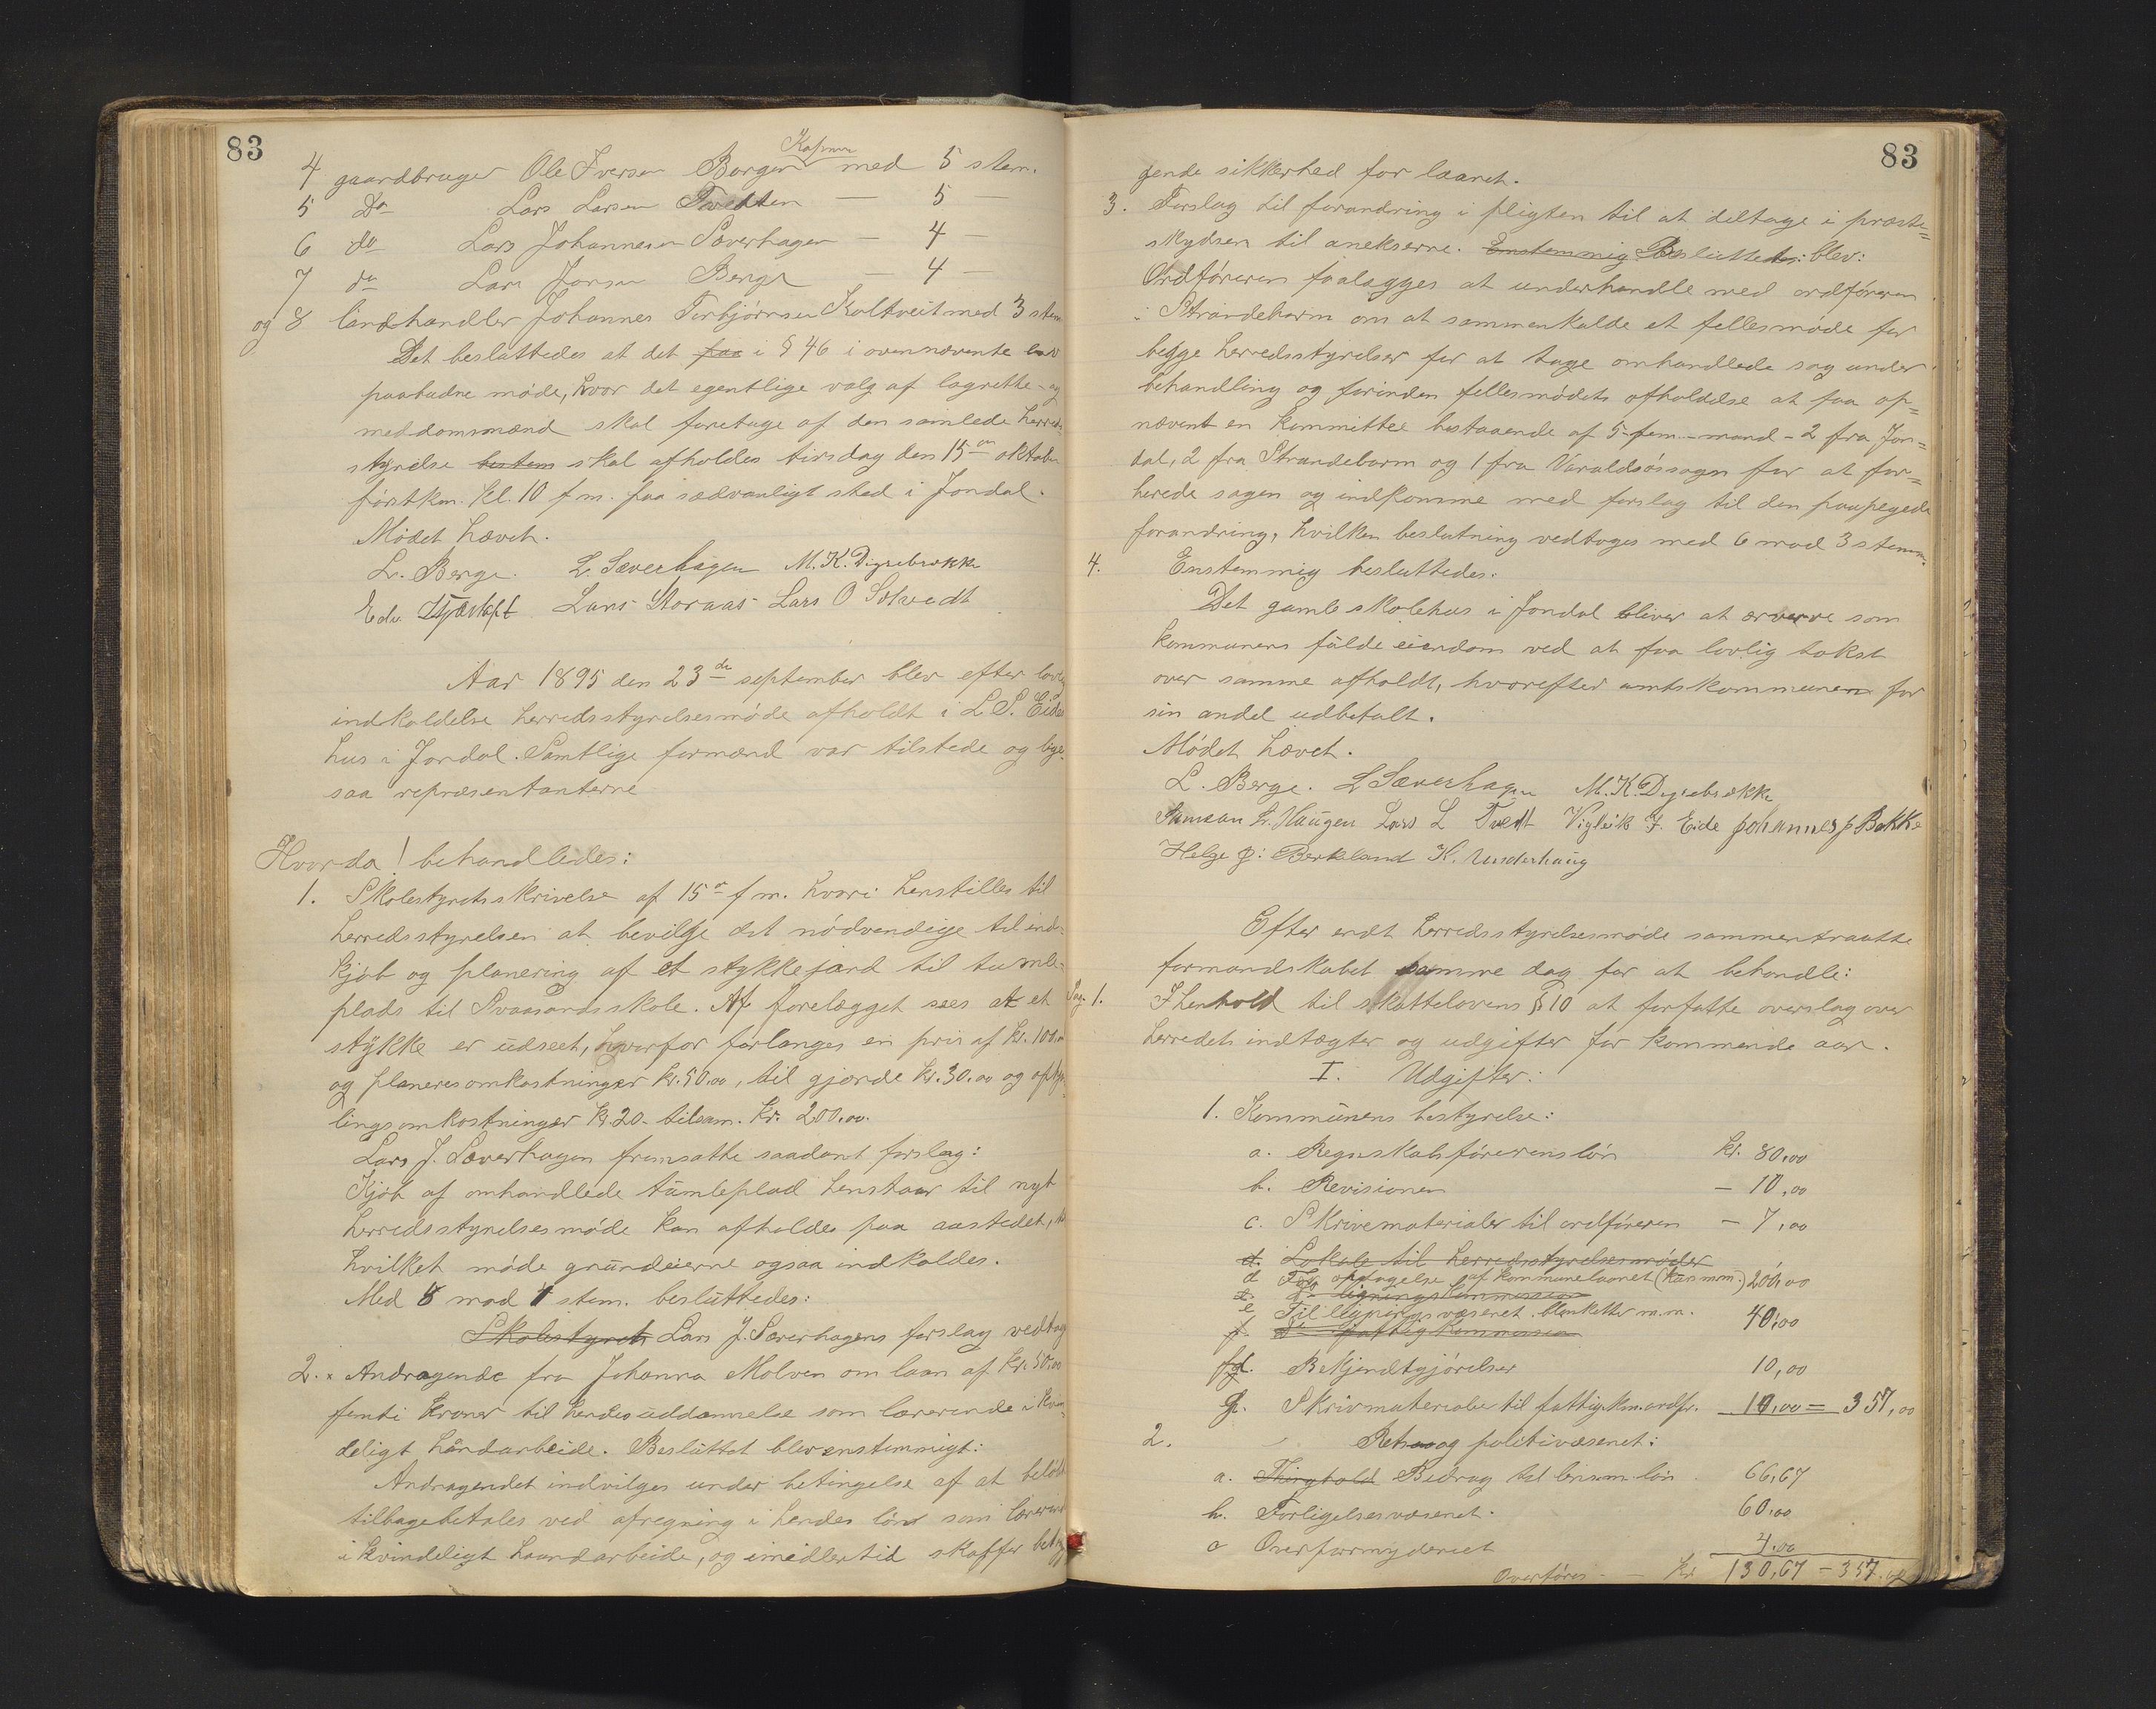 83
4 gaardbruger Ole Iversen Bergen med 5 stem.
5 Do Lars Larsen Tvedten — 5 —
6 do Lars Johannesen Sæverhagen — 4 —
7 do Lars Jonsen Berge — 4 —
og 8 landhandler Johannes Torbjørnsen Koltveit med 3 stem
Det besluttedes at det paa i § 46 i ovennævnte lov
paabudne møde, hvor det egentlige valg af lagrette- og
meddomsmænd skal foretage af den samlede herreds-
styrelse bestem skal afholdes tirsdag den 15de oktober
førstkm. kl. 10 f.m. paa sædvanligt sted i Jondal.
Mødet hævet.
L. Berge. L. Sæverhagen M. K. Dysebrække
Edv. Lars Storaas Lars O Solvedt
Aar 1895 den 23de september blev efter lovlig
indkaldelse herredsstyrelsesmøde afholdt i L. S. Eides
hus i Jondal. Samtlige formænd var tilstede og lige-
saa repræsentanterne
Hvorda! behandledes:
1. Skolestyrets skrivelse af 15de f.m. hvori henstilles til
herredsstyrelsen at bevilge det nødvendige til ind-
kjøb og planering af et stykke jord til tumle-
plads til Svaasands skole. Af forelægget sees at et
stykke er udseet, hvorfor forlanges en pris af kr. 100,00
og planeresomkostninger kr. 50,00, til gjærde kr. 30,00 og
lingsomkostninger kr. 20- tilsam. kr. 200,00.
Lars J. Sæverhagen fremsatte saadant forslag:
Kjøb af omhandlede tumleplad henstaar til nyt
herredsstyrelsesmøde kan afholdes paa aastedet,
hvilket møde grundeierne ogsaa indkaldes.
Med 8 mod 1 stem. besluttedes:
Skolestyrets Lars J. Sæverhagens forslag vedtog
2. Andragende fra Johanna Molven om laan af kr. 50,00
femti kroner til hendes uddannelse som lærerinde i kvin-
deligt håndarbeide. Besluttet blev enstemmigt:
Andragendet indvilges under betingelse af at beløbet
tilbagebetales ved afregning i hendes lønd som lærerinde
i kvindeligt haandarbeide, og imidlertid skaffer betryg-
83
gende sikkerhed for laanet.
3. Forslag til forandring i pligten til at deltage i præste-
skydsen til annekserne. Enstemmig Besluttedes: blev:
Ordføreren paalægges at underhandle med ordføreren
i Strandebarm om at sammenkalde et fellesmøde for
begge herredsstyrelser for at tage omhandlede sag under
behandling og forinden fellesmødets afholdelse at faa op-
nævnt en kommittee bestaaende af 5-fem- mand - 2 fra Jon-
dal, 2 fra Strandebarm og 1 fra Varaldsøssogn for at for-
berede sagen og indkomme med forslag til den paapegede
forandring, hvilken beslutning vedtoges med 6 mod 3 stemm.
4. Enstemmig besluttedes:
Det gamle skolehus i Jondal bliver at erverve som
kommunens fulde eiendom ved at faa lovlig takst
over samme afholdt, hvorefter amtskommunen for
sin andel udbetalt.
Mødet hævet.
L. Berge. L Sæverhagen M. K. Dysebrække
Samson L. Haugen Lars L Tvedt Vigleik J. Eide Johannes J Bakke
Helge J: Berkeland K. Underhaug
Efter endt herredsstyrelsesmøde sammentraatte
formandskabet samme dag for at behandle:
Sag 1. I henhold til skattelovens § 10 at forfatte overslag over
herredets indtægter og udgifter for kommende aar.
I. Udgifter:
1. Kommunens bestyrelse:
a. Regnskabsførerens løn kr. 80,00
b. Revisionen — 10,00
c. Skrivematerialer til ordføreren — 7,00
d. Lokale til herredsstyrelsesmøder
d For optagelse af kommunelaanet 200,00
e. ligningskommission
e Til ligningsvæsenet blanketter m.m. 40,00
f. fattigkommission
f. Bekjendtgjørelser 10,00
g. Skrivmaterialer til fattigkm. ordfr. 10,00 = 357,00
2. Rets- og politivæsenet:
a. Thinghold Bidrag til lensm. løn 66,67
b. Forligelsesvæsenet. 60,00
c Overformynderiet 4,00
Overføres — kr 130,67 — 357,00